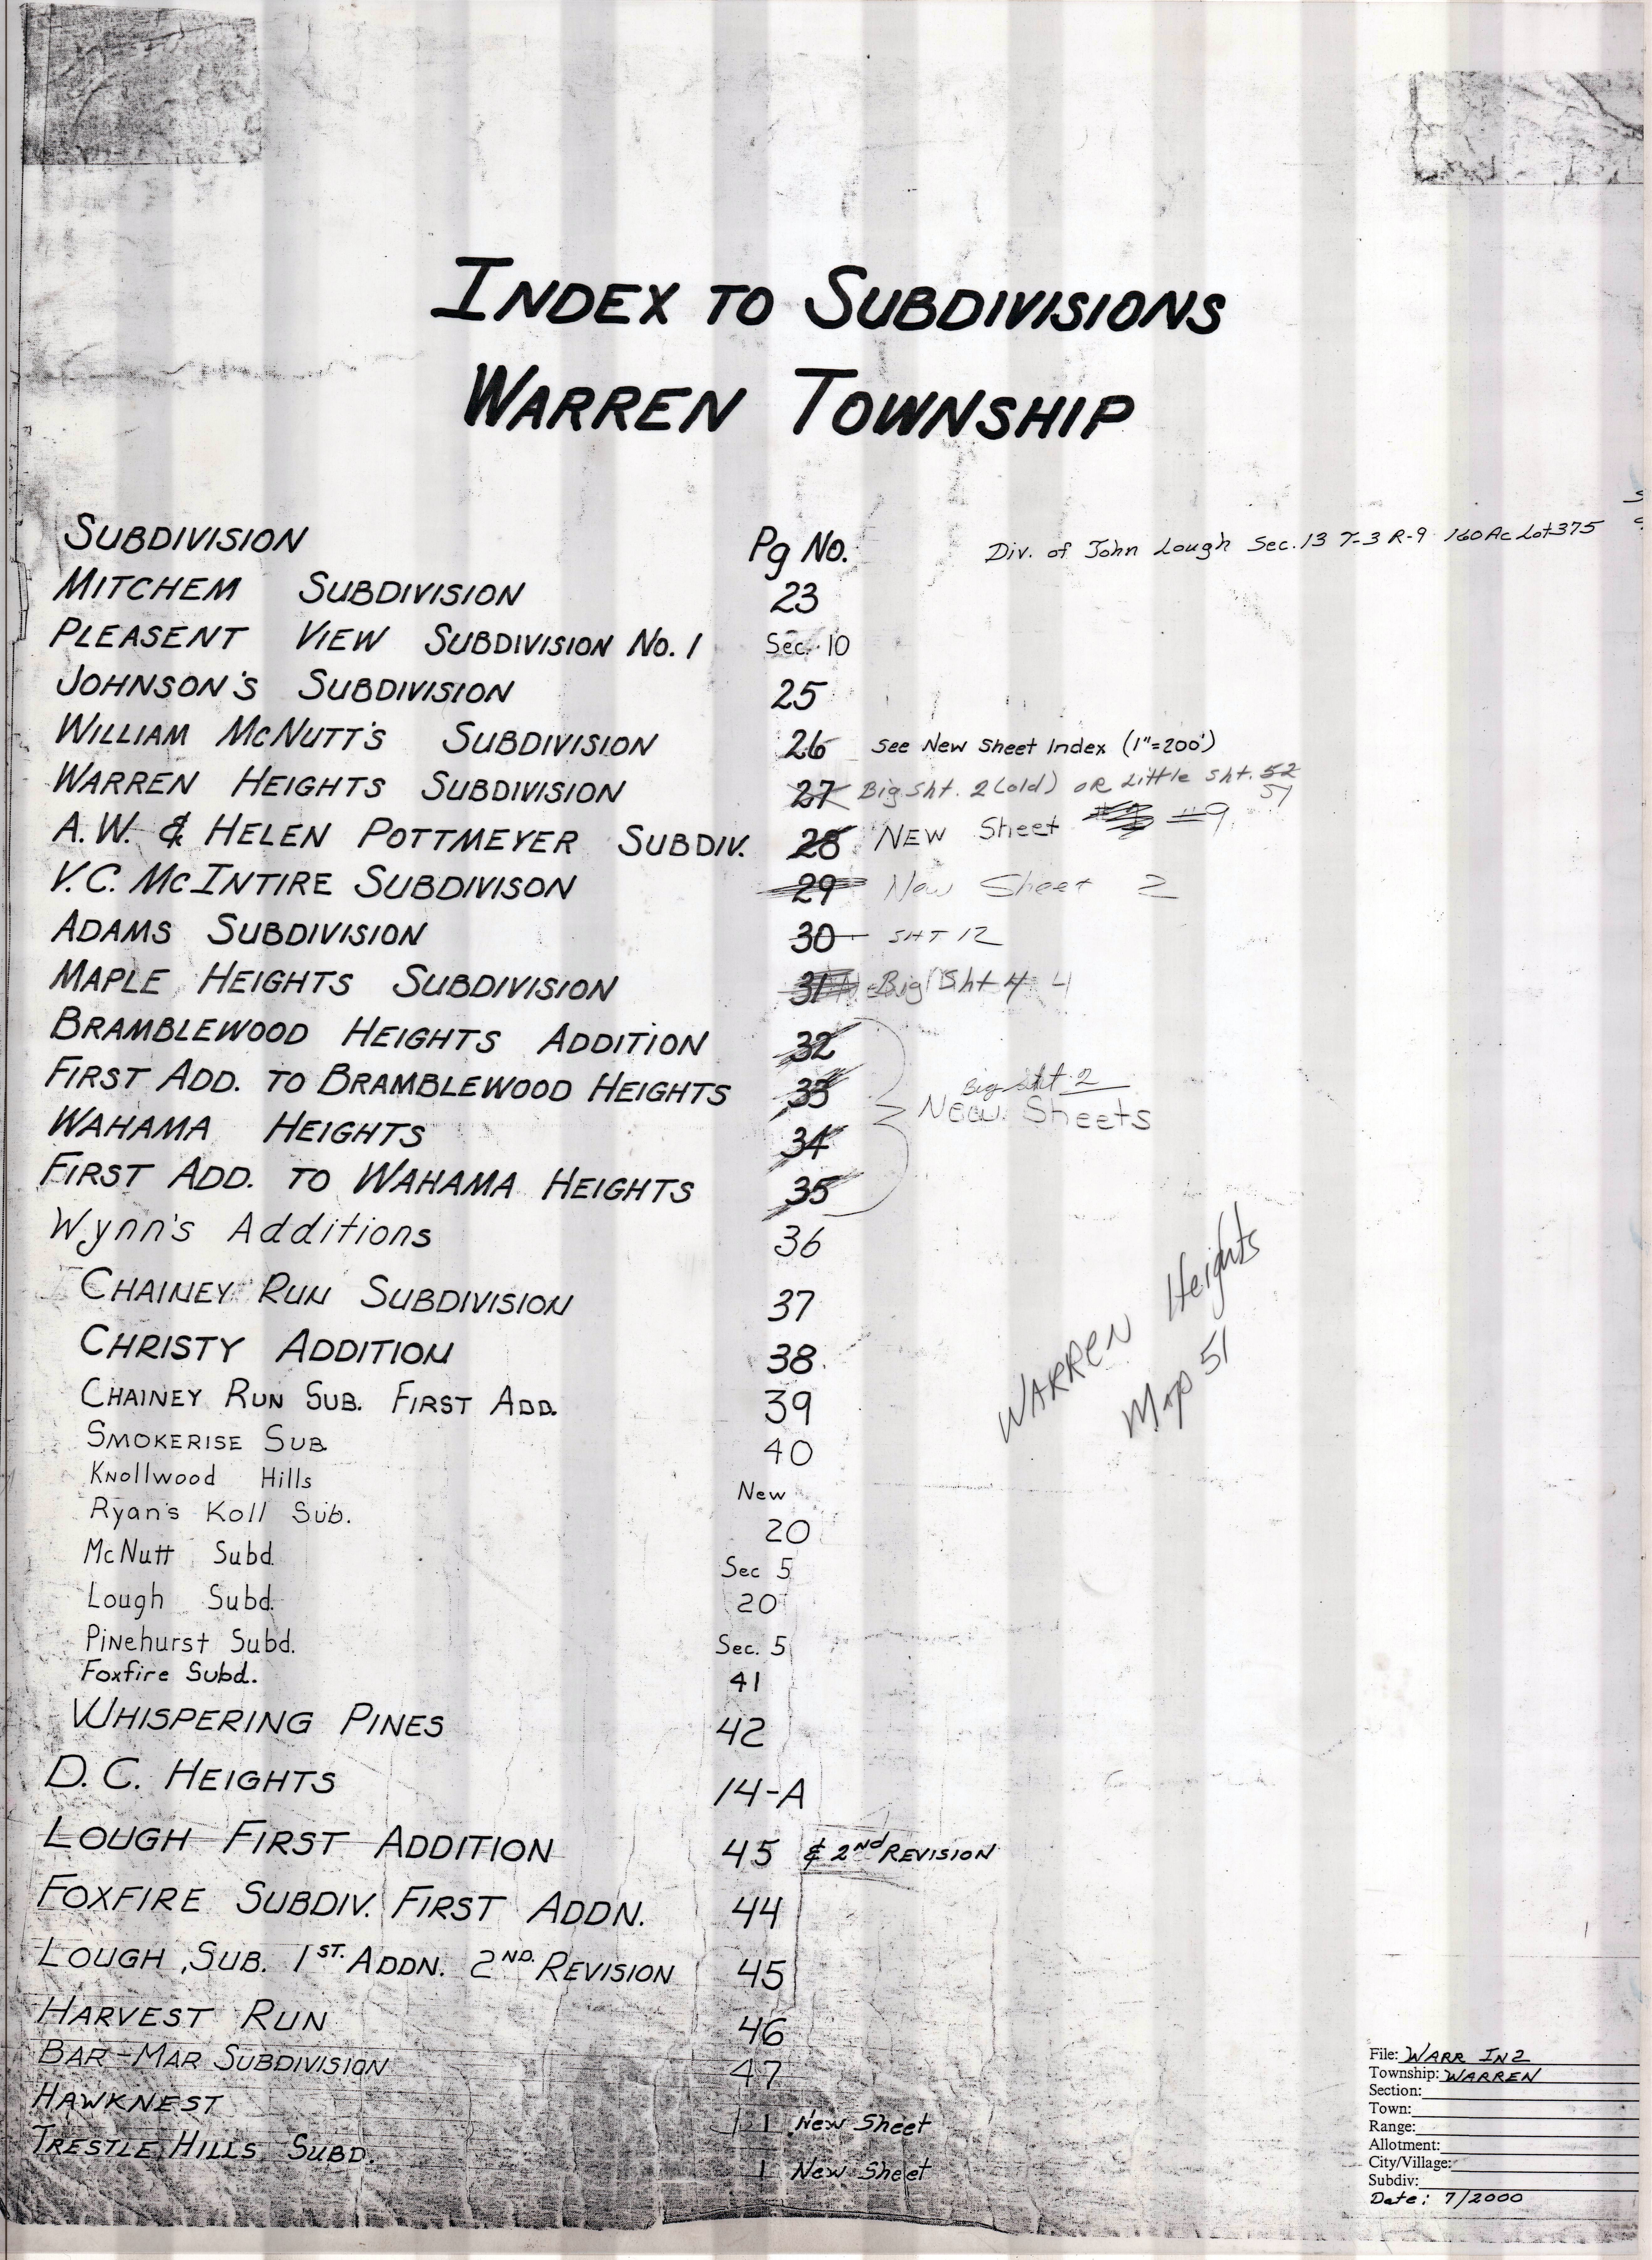 INDEX TO SUBDIVISIONS
WARREN TOWNSHIP
SUBDIVISION Pg No. Div. of John Lough Sec. 13 T-3 R-9 160 Ac Lot 375
MITCHEM SUBDIVISION 23
PLEASENT VIEW SUBDIVISION No. 1 Sec. 10
JOHNSON'S SUBDIVISION 25
WILLIAM MCNUTT'S SUBDIVISION 26 See New Sheet Index (1"=200')
WARREN HEIGHTS SUBDIVISION 27 Big Sht. 2 (old) OR Little Sht. 52
51
A.W. & HELEN POTTMEYER SUBDIV. 28 NEW Sheet #9
V.C. MCINTIRE SUBDIVISON 29 New Sheet 2
ADAMS SUBDIVISION 30 SHT 12
MAPLE HEIGHTS SUBDIVISION 31 Big Sht 4 4
BRAMBLEWOOD HEIGHTS ADDITION 32
FIRST ADD. TO BRAMBLEWOOD HEIGHTS 33 Big sht. 2
New Sheets
WAHAMA HEIGHTS 34
FIRST ADD. TO WAHAMA HEIGHTS 35
Wynn's Additions 36
CHAINEY RUN SUBDIVISION 37
WARREN Heights
Map 51
CHRISTY ADDITION 38
CHAINEY RUN SUB. FIRST ADD. 39
SMOKERISE SUB 40
Knollwood Hills New
Ryan's Koll Sub. 20
McNutt Subd. Sec 5
Lough Subd. 20
Pinehurst Subd. Sec. 5
Foxfire Subd. 41
WHISPERING PINES 42
D.C. HEIGHTS 14-A
LOUGH FIRST ADDITION 45 & 2nd REVISION
FOXFIRE SUBDIV. FIRST ADDN. 44
LOUGH SUB. 1ST. ADDN. 2ND. REVISION 45
HARVEST RUN 46
BAR-MAR SUBDIVISION 47
HAWKNEST 1 New Sheet
TRESTLE HILLS SUBD. 1 New Sheet
File: WARR IN2
Township: WARREN
Section:
Town:
Range:
Allotment:
City/Village:
Subdiv:
Date: 7/2000